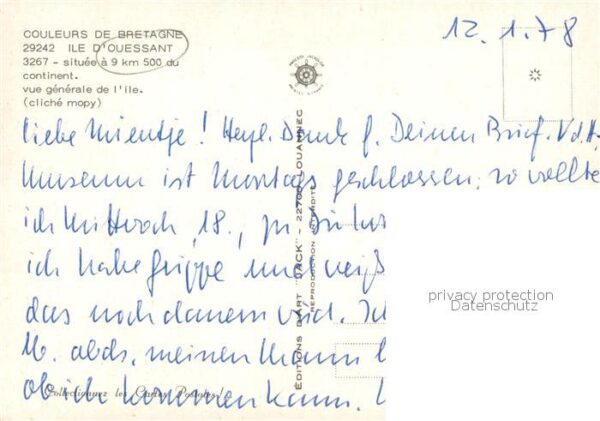 COULEURS DE BRETAGNE
29242 ILE D'OUESSANT
3267 - située à 9 km 500 du
continent.
vue générale de l'île.
(cliché mopy)
12.1.78
Liebe Mientje! Herzl. Dank f. Deinen Brief. V.d.H.
Museum ist Montags geschlossen, so wollte
ich Mittwoch, 18., zu
ich habe Grippe und weiß
das noch dauern wird. Ich
M. abds. meinen Mann
ob ich kommen kann.
EDITIONS D'ART "JACK" - 22700 LOUANNEC
REPRODUCTION INTERDITE
Collectionnez les Cartes Postales!
privacy protection
Datenschutz